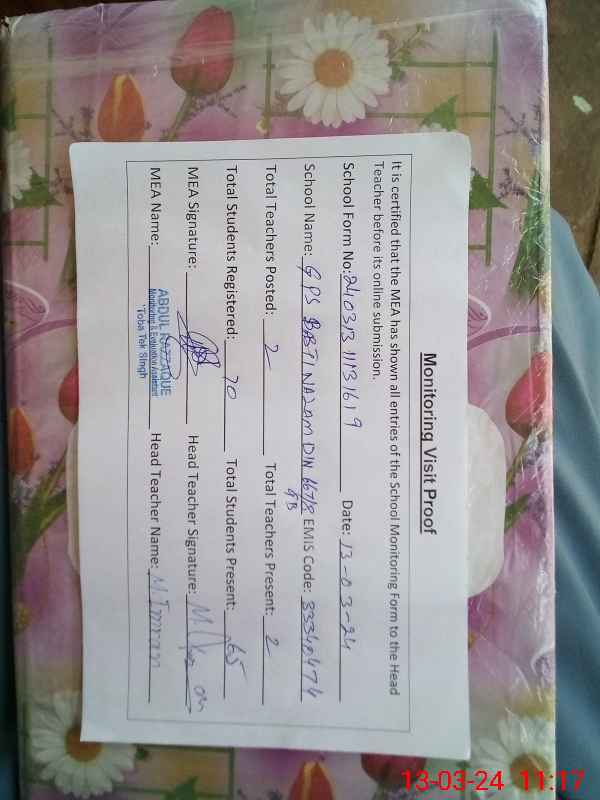 Monitoring Visit Proof
It is certified that the MEA has shown all entries of the School Monitoring Form to the Head
Teacher before its online submission.
School Form No: Date: 13-03-24
School Name: GPS BASTI NAZAM DIN 667/8 GB EMIS Code: 33340474
Total Teachers Posted: 2 Total Teachers Present: 2
Total Students Registered: 70 Total Students Present: 65
MEA Signature: Head Teacher Signature:
MEA Name: ABDUL RAZZAQUE Head Teacher Name: M. Imran
Monitoring & Evaluation Assistant
Toba Tek Singh
13-03-24 11:17